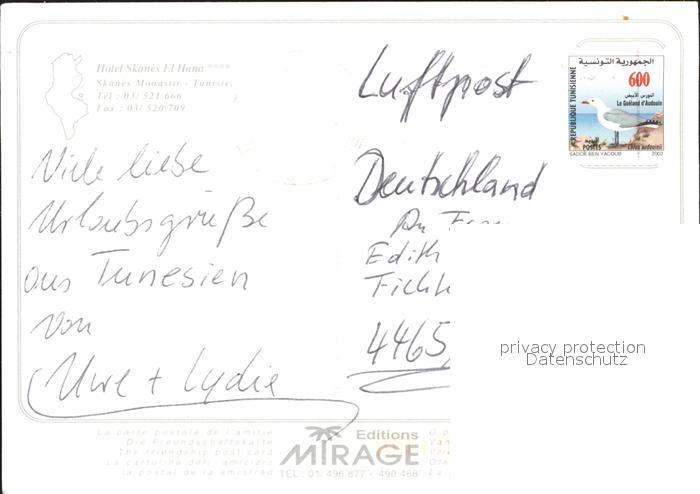 Hôtel Skanès El Hana ****
Skanès Monastir - Tunisie.
Tél : 03/ 521 666
Fax : 03/ 520 709
Viele liebe
Urlaubsgrüße
aus Tunesien
von
Uwe + Lydie
Luftpost
Deutschland
An
Edith
4465
الجمهورية التونسية
600
REPUBLIQUE TUNISIENNE
Le Goéland d'Audouin
POSTES
Larus audouinii
SADOK BEN YACOUB 2002
privacy protection
Datenschutz
La carte postale de l'amitié
Die Freundschaftskarte
The friendship post card
La cartolina dell' amicizia
la postal de la amistad
Editions
MIRAGE
TEL : 01. 496.877 - 490.468